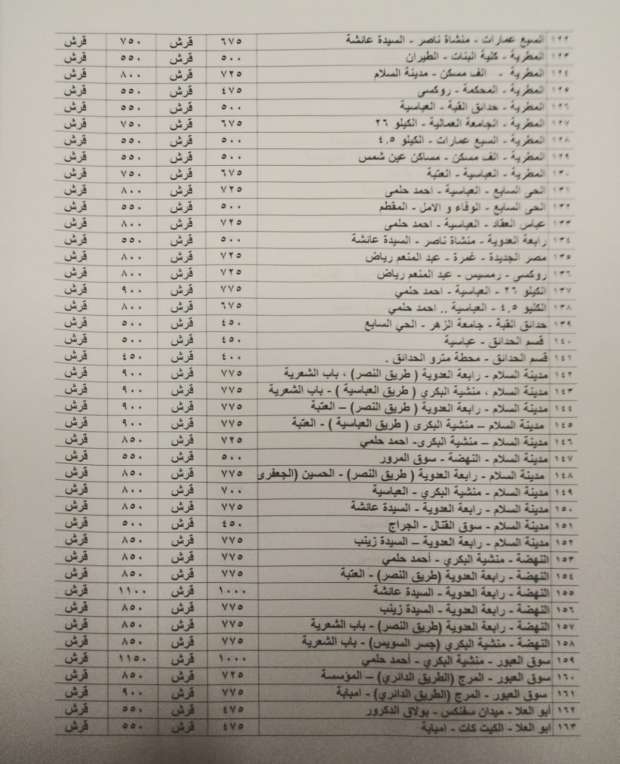 ١٢٢ السبع عمارات - منشاة ناصر - السيدة عائشة ٦٧٥ قرش ٧٥٠ قرش
١٢٣ المطرية - كلية البنات - الطيران ٥٠٠ قرش ٥٥٠ قرش
١٢٤ المطرية - الف مسكن - مدينة السلام ٧٢٥ قرش ٨٠٠ قرش
١٢٥ المطرية - المحكمة - روكسى ٤٧٥ قرش ٥٥٠ قرش
١٢٦ المطرية - حدائق القبة - العباسية ٥٠٠ قرش ٥٥٠ قرش
١٢٧ المطرية - الجامعة العمالية - الكيلو ٢٦ ٦٧٥ قرش ٧٥٠ قرش
١٢٨ المطرية - السبع عمارات - الكيلو ٤.٥ ٥٠٠ قرش ٥٥٠ قرش
١٢٩ المطرية - الف مسكن - مساكن عين شمس ٥٠٠ قرش ٥٥٠ قرش
١٣٠ المطرية - العباسية - العتبة ٦٧٥ قرش ٧٥٠ قرش
١٣١ الحى السابع - العباسية - احمد حلمى ٧٢٥ قرش ٨٠٠ قرش
١٣٢ الحى السابع - الوفاء و الامل - المقطم ٥٠٠ قرش ٥٥٠ قرش
١٣٣ عباس العقاد - العباسية - احمد حلمى ٧٢٥ قرش ٨٠٠ قرش
١٣٤ رابعة العدوية - منشاة ناصر - السيدة عائشة ٥٠٠ قرش ٥٥٠ قرش
١٣٥ مصر الجديدة - غمرة - عبد المنعم رياض ٧٢٥ قرش ٨٠٠ قرش
١٣٦ روكسى - رمسيس - عبد المنعم رياض ٧٢٥ قرش ٨٠٠ قرش
١٣٧ الكيلو ٢٦ - العباسية - احمد حلمي ٧٧٥ قرش ٩٠٠ قرش
١٣٨ الكليو ٤.٥ - العباسية .. احمد حلمي ٦٧٥ قرش ٨٠٠ قرش
١٣٩ حدائق القبة - جامعة الزهر - الحي السابع ٤٥٠ قرش ٥٠٠ قرش
١٤٠ قسم الحدائق - عباسية ٤٥٠ قرش ٥٠٠ قرش
١٤١ قسم الحدائق - محطة مترو الحدائق . ٤٠٠ قرش ٤٥٠ قرش
١٤٢ مدينة السلام - رابعة العدوية ( طريق النصر) ، باب الشعرية ٧٧٥ قرش ٩٠٠ قرش
١٤٣ مدينة السلام ، منشية البكري ( طريق العباسية ) - باب الشعرية ٧٧٥ قرش ٩٠٠ قرش
١٤٤ مدينة السلام - رابعة العدوية ( طريق النصر) – العتبة ٧٧٥ قرش ٩٠٠ قرش
١٤٥ مدينة السلام – منشية البكرى ( طريق العباسية ) - العتبة ٧٧٥ قرش ٩٠٠ قرش
١٤٦ مدينة السلام – منشية البكرى- احمد حلمي ٧٢٥ قرش ٨٥٠ قرش
١٤٧ مدينة السلام - النهضة - سوق المرور ٥٠٠ قرش ٥٥٠ قرش
١٤٨ مدينة السلام - رابعة العدوية ( طريق النصر) - الحسين (الجعفرى ٧٧٥ قرش ٨٥٠ قرش
١٤٩ مدينة السلام - منشية البكري - العباسية ٧٠٠ قرش ٨٠٠ قرش
١٥٠ مدينة السلام - رابعة العدوية - السيدة عائشة ٧٧٥ قرش ٨٥٠ قرش
١٥١ مدينة السلام - سوق القنال - الجراج ٤٥٠ قرش ٥٠٠ قرش
١٥٢ مدينة السلام - رابعة العدوية – السيدة زينب ٧٧٥ قرش ٨٥٠ قرش
١٥٣ النهضة - منشية البكري - أحمد حلمي ٧٧٥ قرش ٨٥٠ قرش
١٥٤ النهضة - رابعة العدوية (طريق النصر) - العتبة ٧٧٥ قرش ٨٥٠ قرش
١٥٥ النهضة - رابعة العدوية - السيدة عائشة ١٠٠٠ قرش ١١٠٠ قرش
١٥٦ النهضة - رابعة العدوية - السيدة زينب ٧٧٥ قرش ٨٥٠ قرش
١٥٧ النهضة - رابعة العدوية (طريق النصر) - باب الشعرية ٧٧٥ قرش ٨٥٠ قرش
١٥٨ النهضة - منشية البكري (جسر السويس) - باب الشعرية ٧٧٥ قرش ٨٥٠ قرش
١٥٩ سوق العبور - منشية البكري - أحمد حلمي ١٠٠٠ قرش ١١٥٠ قرش
١٦٠ سوق العبور - المرج (الطريق الدائري) – المؤسسة ٧٢٥ قرش ٨٥٠ قرش
١٦١ سوق العبور - المرج (الطريق الدائري) - امبابة ٧٧٥ قرش ٩٠٠ قرش
١٦٢ أبو العلا - ميدان سفنكس - بولاق الدكرور ٤٧٥ قرش ٥٥٠ قرش
١٦٣ ابو العلا - الكيت كات - امبابة ٤٧٥ قرش ٥٥٠ قرش